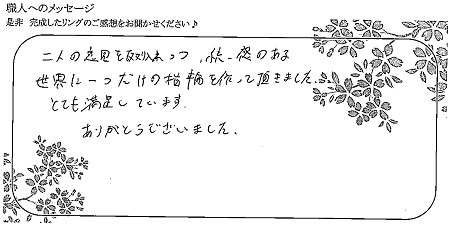 職人へのメッセージ
是非 完成したリングのご感想をお聞かせください♪
二人の意見を取り入れつつ、統一感のある
世界に一つだけの指輪を作って頂きました。
とても満足しています。
ありがとうございました。